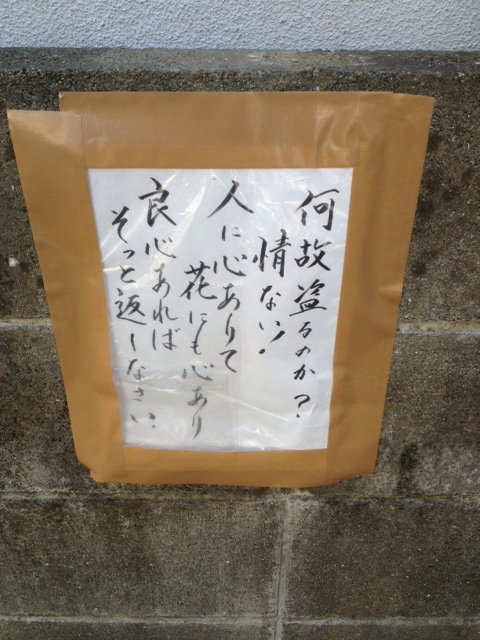 何故盗るのか?
情ない!
人に心ありて
花にも心あり
良心あれば
そっと返しなさい